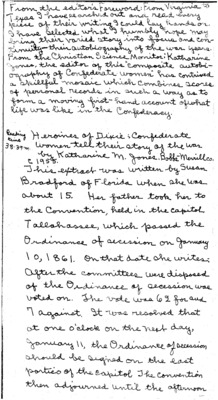 From the editors Foreword: From Virginia to
Texas I have searched out and read every
piece of their writing I could lay hands on.
I have selected what I humbly hope may
bring their varied story into focus and con-
tinuity - their autobiography of the war years.
From the Christian Science Monitor: Katharine
Jones, the editor of this composite autobi-
ography of Confederate women has contrived
a skillful mosaic which combines scores
of personal records in such a way as to
form a moving first-hand account of what
life was like in the Confederacy.
Heroines of Dixie: Confederate
women tell their story of the war
by Katharine M. Jones. Bobbs Merrill Co.
c 1955.
This extract was written by Susan
Bradford of Florida when she was
about 15. Her father took her to
the Convention, held in the capitol
Tallahassee, which passed the
Ordinance of secession on January
10, 1861. On that date she writes:
After the committees were disposed
of the Ordinance of secession was
voted on. The vote was 62 for and
7 against. It was resolved that
at one o'clock on the next day,
January 11, the Ordinance of secession
should be signed on the east
portico of the capitol. The convention
then adjourned until the afternoon